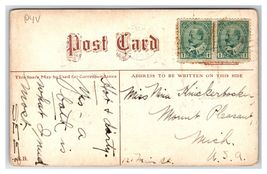 P4V
Post Card
This Space May be Used for Correspondence
ADDRESS TO BE WRITTEN ON THIS SIDE
Hot & dirty.
Yes - a
bath is
what I need
most.
Miss Nina Knickerbocker
Mount Pleasant
Mich.
U.S.A.
121 Main St.